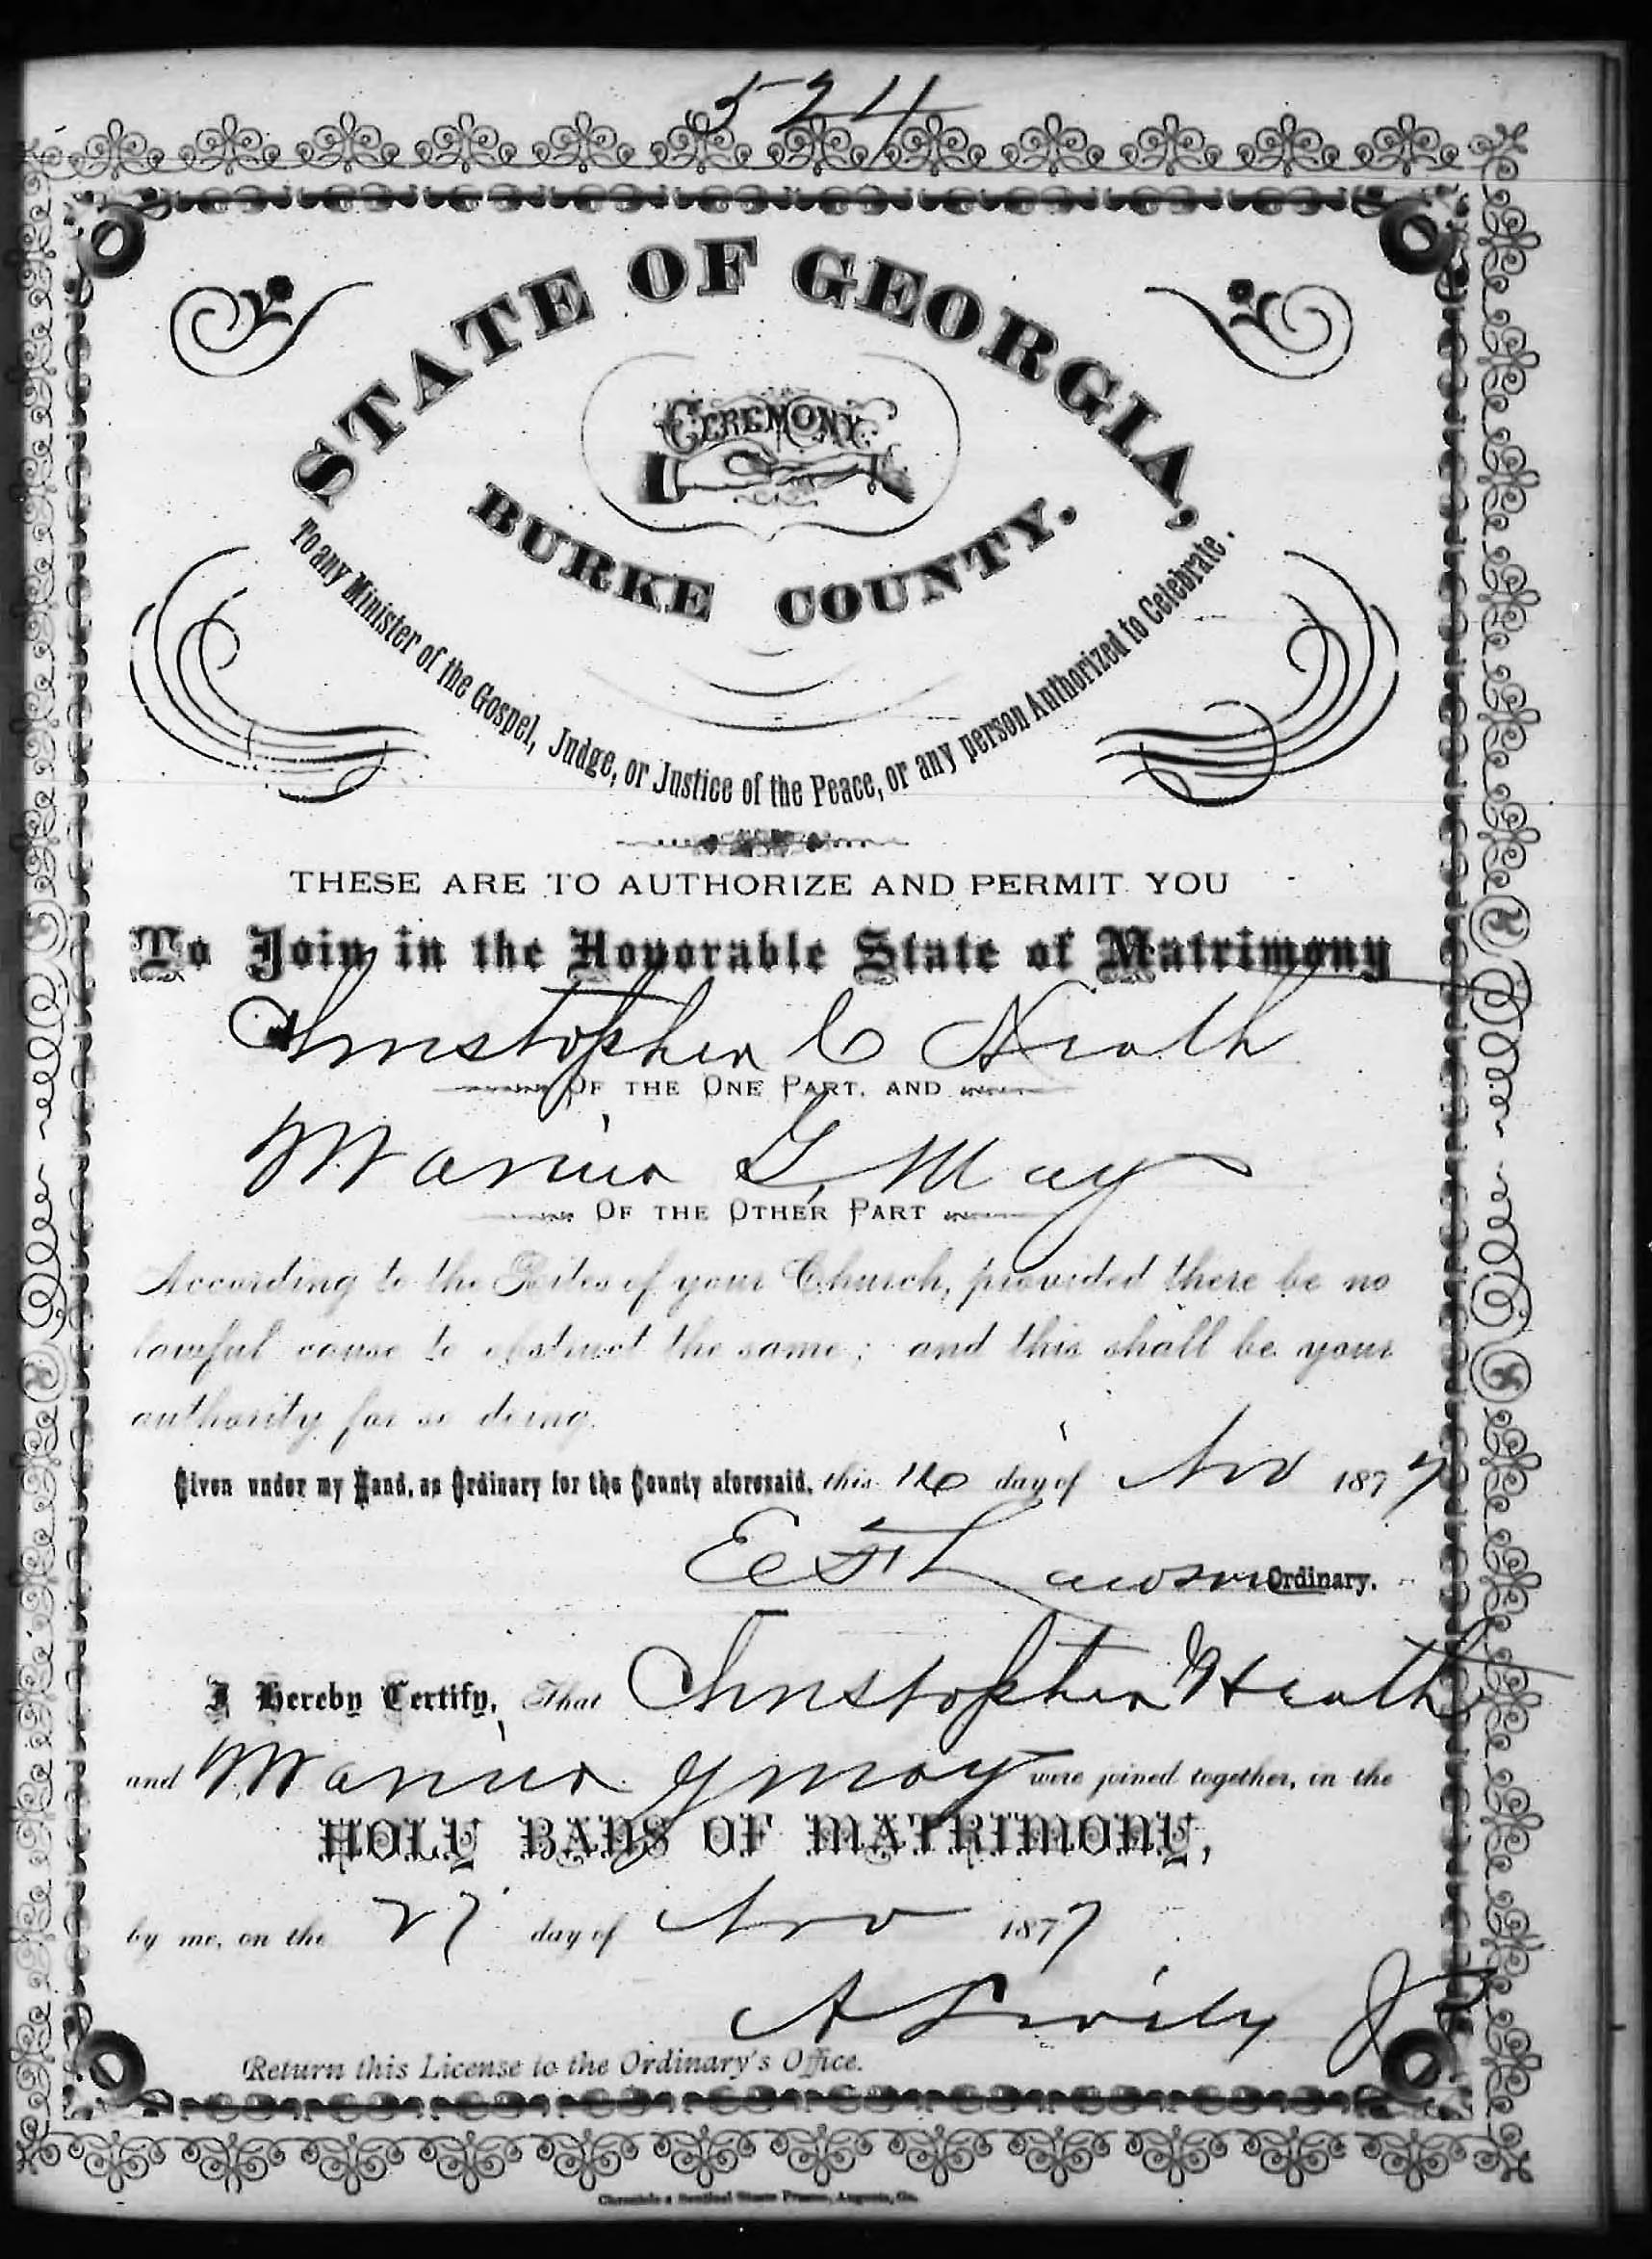 524
STATE OF GEORGIA,
CEREMONY
BURKE COUNTY.
To any Minister of the Gospel, Judge, or Justice of the Peace, or any person Authorized to Celebrate.
THESE ARE TO AUTHORIZE AND PERMIT YOU
To Join in the Honorable State of Matrimony
Christopher C Heath
OF THE ONE PART, AND
G. May
OF THE OTHER PART
According to the Rites of your Church, provided there be no
lawful cause to obstruct the same; and this shall be your
authority for so doing.
Given under my Hand, as Ordinary for the County aforesaid, this 16 day of Nov 1877
E F Lawson Ordinary.
I Hereby Certify, That Christopher Heath
and G May were joined together, in the
HOLY BANS OF MATRIMONY,
by me, on the 27 day of Nov 1877
A
Return this License to the Ordinary's Office.
Chronicle & Sentinel Steam Presses, Augusta, Ga.